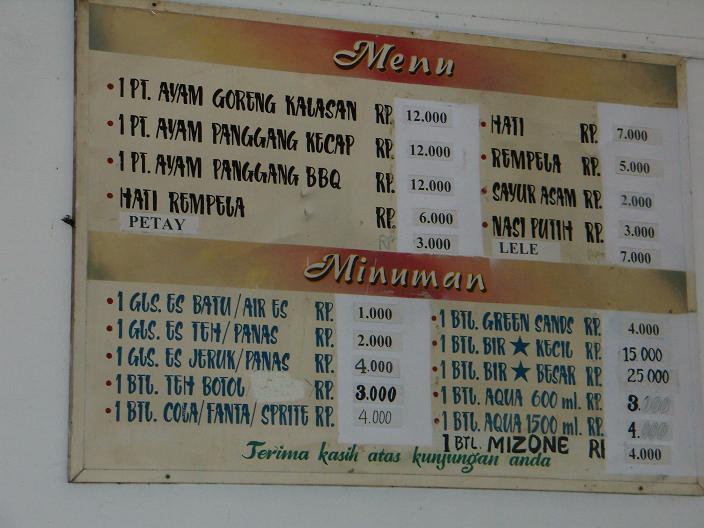 Menu
• 1 PT. AYAM GORENG KALASAN RP. 12.000
• 1 PT. AYAM PANGGANG KECAP RP. 12.000
• 1 PT. AYAM PANGGANG BBQ RP. 12.000
• HATI REMPELA RP. 6.000
PETAY 3.000
• HATI RP. 7.000
• REMPELA RP. 5.000
• SAYUR ASAM RP. 2.000
• NASI PUTIH RP. 3.000
LELE 7.000
Minuman
• 1 GLS. ES BATU/AIR ES RP. 1.000
• 1 GLS. ES TEH/PANAS RP. 2.000
• 1 GLS. ES JERUK/PANAS RP. 4.000
• 1 BTL. TEH BOTOL RP. 3.000
• 1 BTL. COLA/FANTA/SPRITE RP. 4.000
• 1 BTL. GREEN SANDS RP. 4.000
• 1 BTL. BIR ★ KECIL RP. 15.000
• 1 BTL. BIR ★ BESAR RP. 25.000
• 1 BTL. AQUA 600 ml. RP. 3.000
• 1 BTL. AQUA 1500 ml. RP. 4.000
1 BTL. MIZONE RP 4.000
Terima kasih atas kunjungan anda